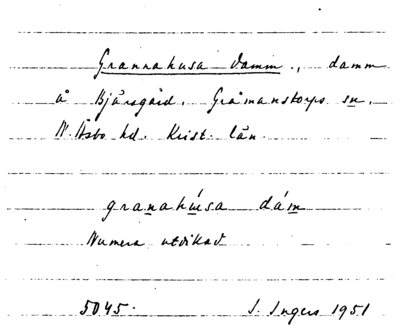 Grannahusa damm., damm
å Bjärsgård. Gråmanstorps sn.
N. Åsbo hd. Krist. län.
granahúsa dám
Numera utdikad
5045. I. Ingers 1951